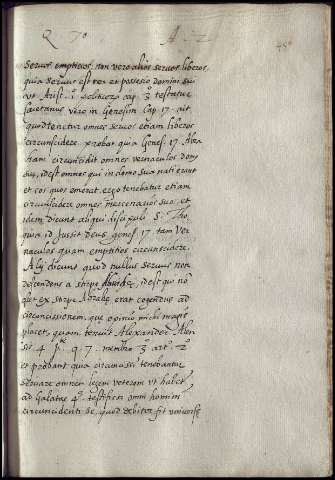 Q. 7ª A. 2
servos emptitios non vero alios servos liberos,
quia servus est res et possesio domini sui
ut Arist. 1 politicorū cap. 3 testatur
Caietanus vero in Genesim Cap. 17 ait
quod tenetur omnes servos etiam liberos
circumscidere, probat quia Genes. 17. Abra
ham circuncidit omnes vernaculos dom
, id est omnes qui in domo sua nati erant
et eos quos emerat. ergo tenebatur etiam
circumscidere omnes mercenarios suos. et
idem dicunt aliqui discipuli S. Tho.
quia id Jussit Deus genes. 17. tam ver
naculos quam emptitios circumscidere.
Alij dicunt quod nullus servus non
descendens a stirpe, id est qui nō
ex stirpe Abrahe erat cogendus ad
circuncisionem, que opinio michi magis
placet, quam tenuit Alexander Alen
sis 4 p. q. 7. membro 3 art. 2
et probant quia circumcisi tenebantur
servare omnem legem veterem ut habet
ad Galatas 4. testificor omni homini
circuncidenti se, quod debitor sit universe